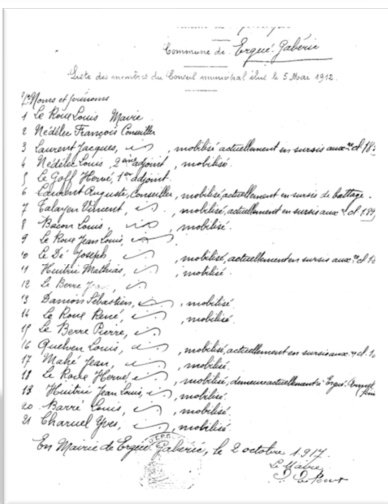 Commune de Ergué-Gabéric
Liste des membres du Conseil municipal élus le 5 Mai 1912.
Noms et prénoms
1 Le Roux Louis Maire
2 Nédélec François Conseiller
3 Laurent Jacques, , mobilisé actuellement en sursis aux
4 Nédélec Louis, 2ème adjoint, mobilisé.
5 Le Goff Hervé, 1er adjoint
6 Laurent Auguste, Conseiller, mobilisé actuellement en sursis de battage.
7 Vincent, , mobilisé, actuellement en sursis aux
8 Louis, , mobilisé
9 Le Roux Jean Louis,
10 Le Dé Joseph, , mobilisé, actuellement en sursis aux
11 Huitric Mathias, , mobilisé
12 Le Berre
13 Sébastien, , mobilisé.
14 Le Roux René, , mobilisé.
15 Le Berre Pierre,
16 Quelven Louis, , mobilisé, actuellement en sursis aux
17 Mahé Jean,
18 Le Roux Hervé, , mobilisé, actuellement à Ergué-Armel
19 Huitric Jean Louis, , mobilisé
20 Barré Louis, , mobilisé
21 Charuel Yves, , mobilisé
En Mairie de Ergué Gabéric, le 2 octobre 1917.
Le Maire,
Le Roux